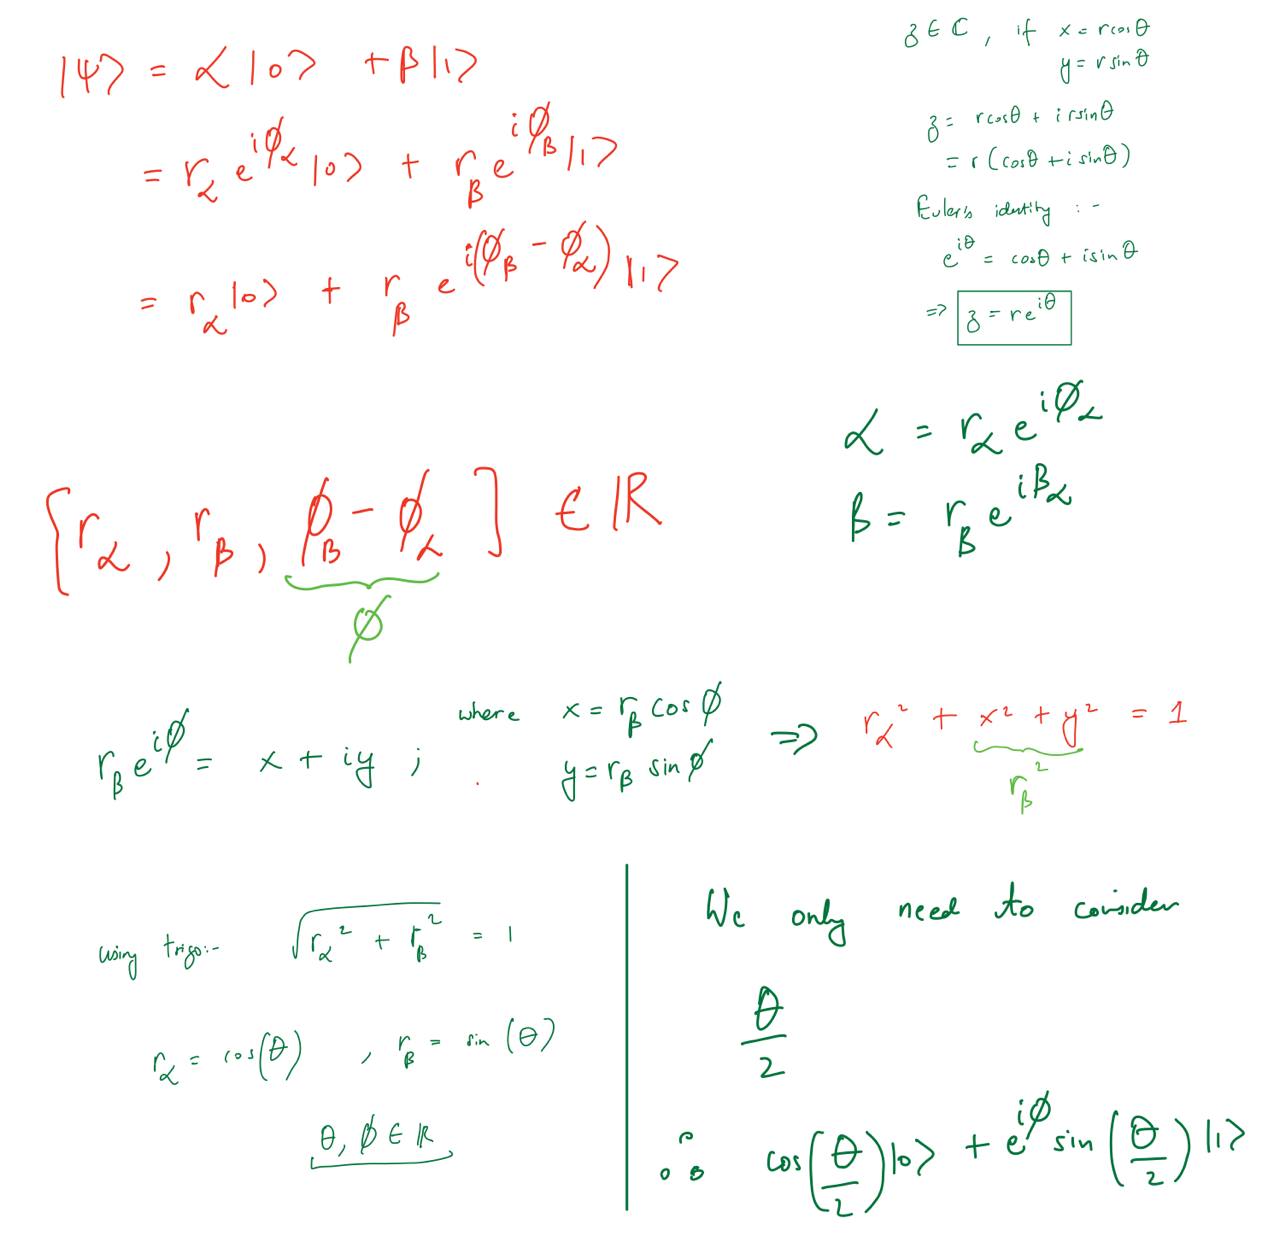 |ψ⟩ = α|0⟩ + β|1⟩
= r_α e^{iφ_α}|0⟩ + r_β e^{iφ_β}|1⟩
= r_α|0⟩ + r_β e^{i(φ_β - φ_α)}|1⟩
z ∈ ℂ, if x = rcosθ
y = r sinθ
z = rcosθ + i rsinθ
= r(cosθ + i sinθ)
Euler's identity :-
e^{iθ} = cosθ + isinθ
⇒ z = re^{iθ}
α = r_α e^{iφ_α}
β = r_β e^{iβ_α}
[r_α, r_β, φ_β - φ_α] ∈ ℝ
φ
r_β e^{iφ} = x + iy ; where x = r_β cos φ
y = r_β sin φ
⇒ r_α² + x² + y² = 1
r_β²
using trigo:- √(r_α² + r_β²) = 1
r_α = cos(θ) , r_β = sin(θ)
θ, φ ∈ ℝ
We only need to consider
θ/2
∴ cos(θ/2)|0⟩ + e^{iφ} sin(θ/2)|1⟩